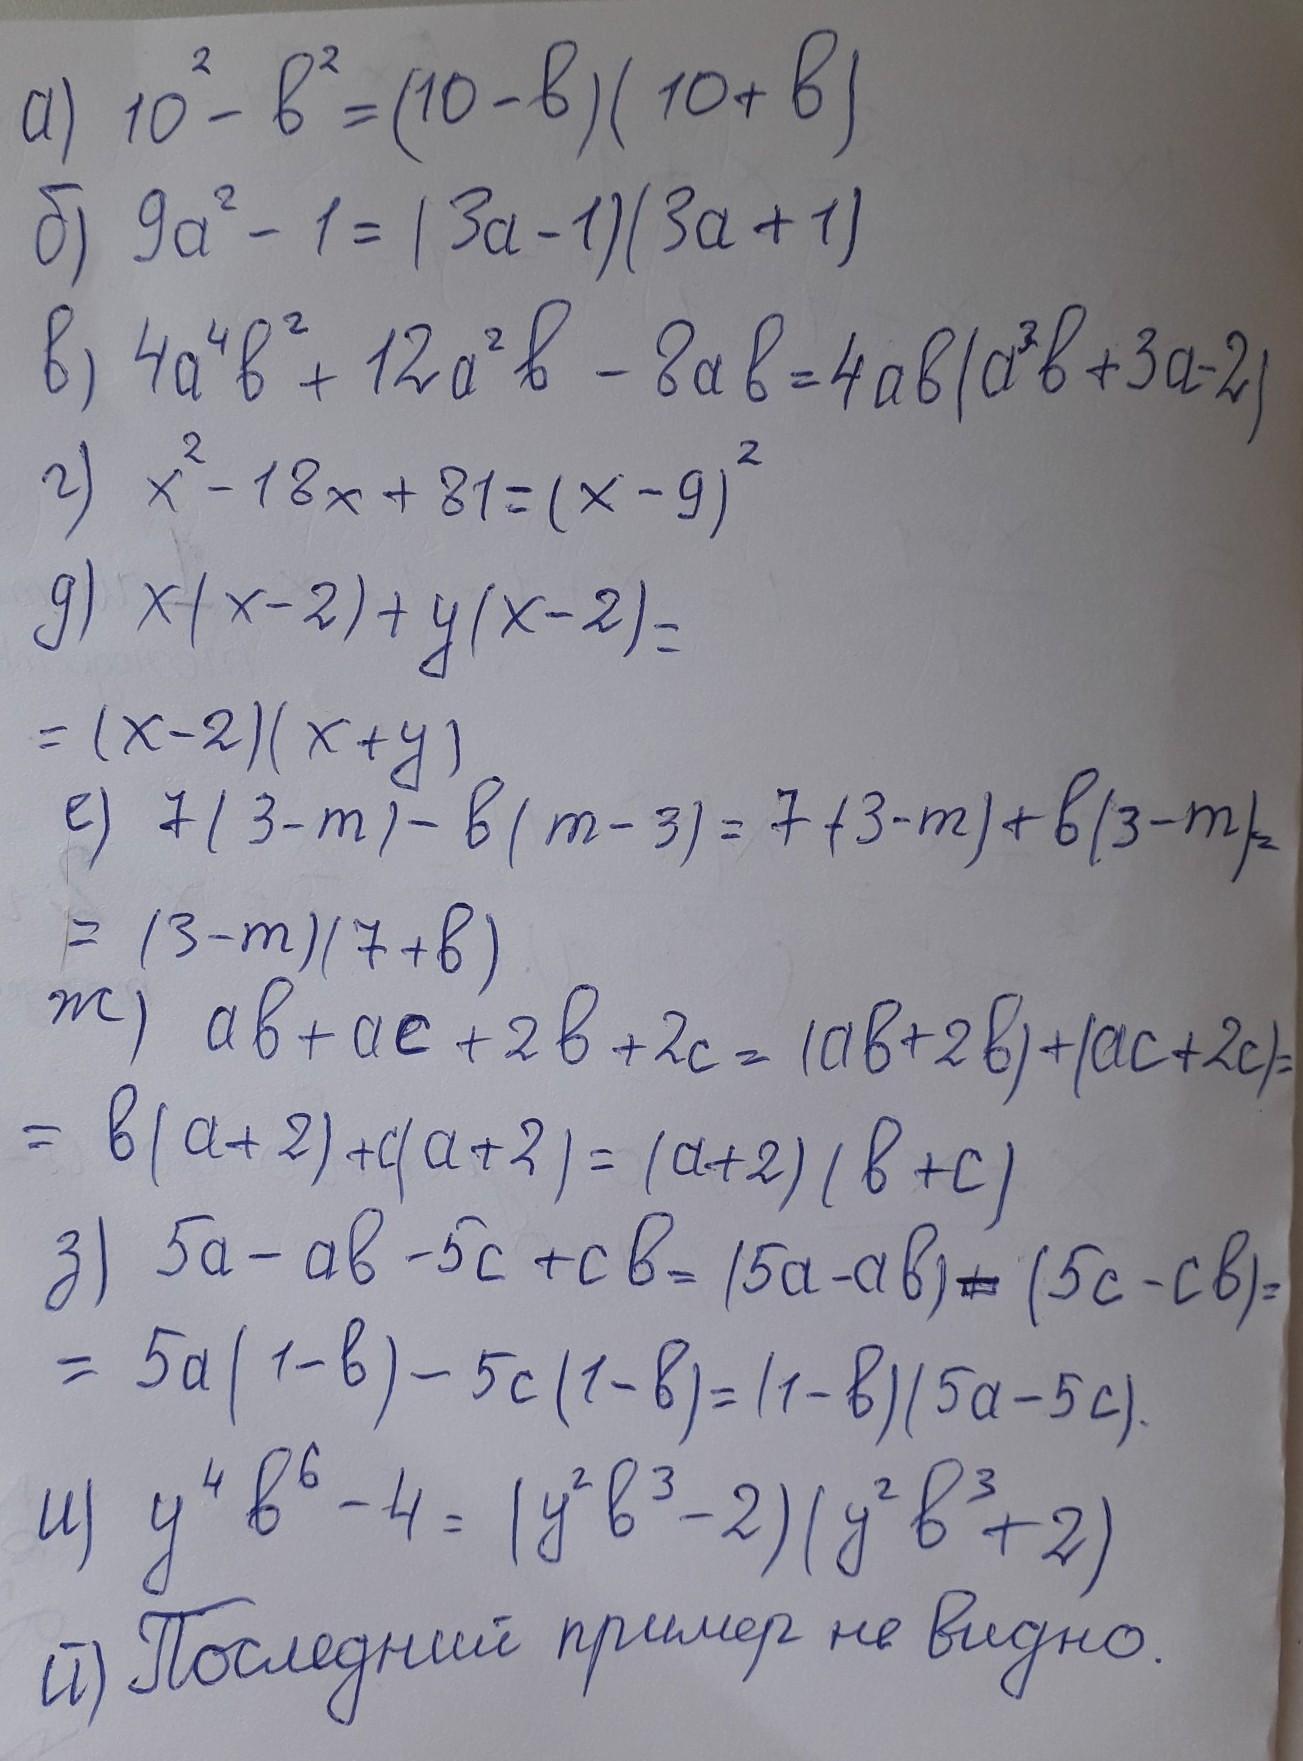 а) 10² - b² = (10 - b)(10 + b)
б) 9a² - 1 = (3a - 1)(3a + 1)
в) 4a⁴b² + 12a²b - 8ab = 4ab(a³b + 3a - 2)
г) x² - 18x + 81 = (x - 9)²
д) x(x - 2) + y(x - 2) =
= (x - 2)(x + y)
е) 7(3 - m) - b(m - 3) = 7(3 - m) + b(3 - m) =
= (3 - m)(7 + b)
ж) ab + ac + 2b + 2c = (ab + 2b) + (ac + 2c) =
= b(a + 2) + c(a + 2) = (a + 2)(b + c)
з) 5a - ab - 5c + cb = (5a - ab) - (5c - cb) =
= 5a(1 - b) - 5c(1 - b) = (1 - b)(5a - 5c).
и) y⁴b⁶ - 4 = (y²b³ - 2)(y²b³ + 2)
й) Последний пример не видно.